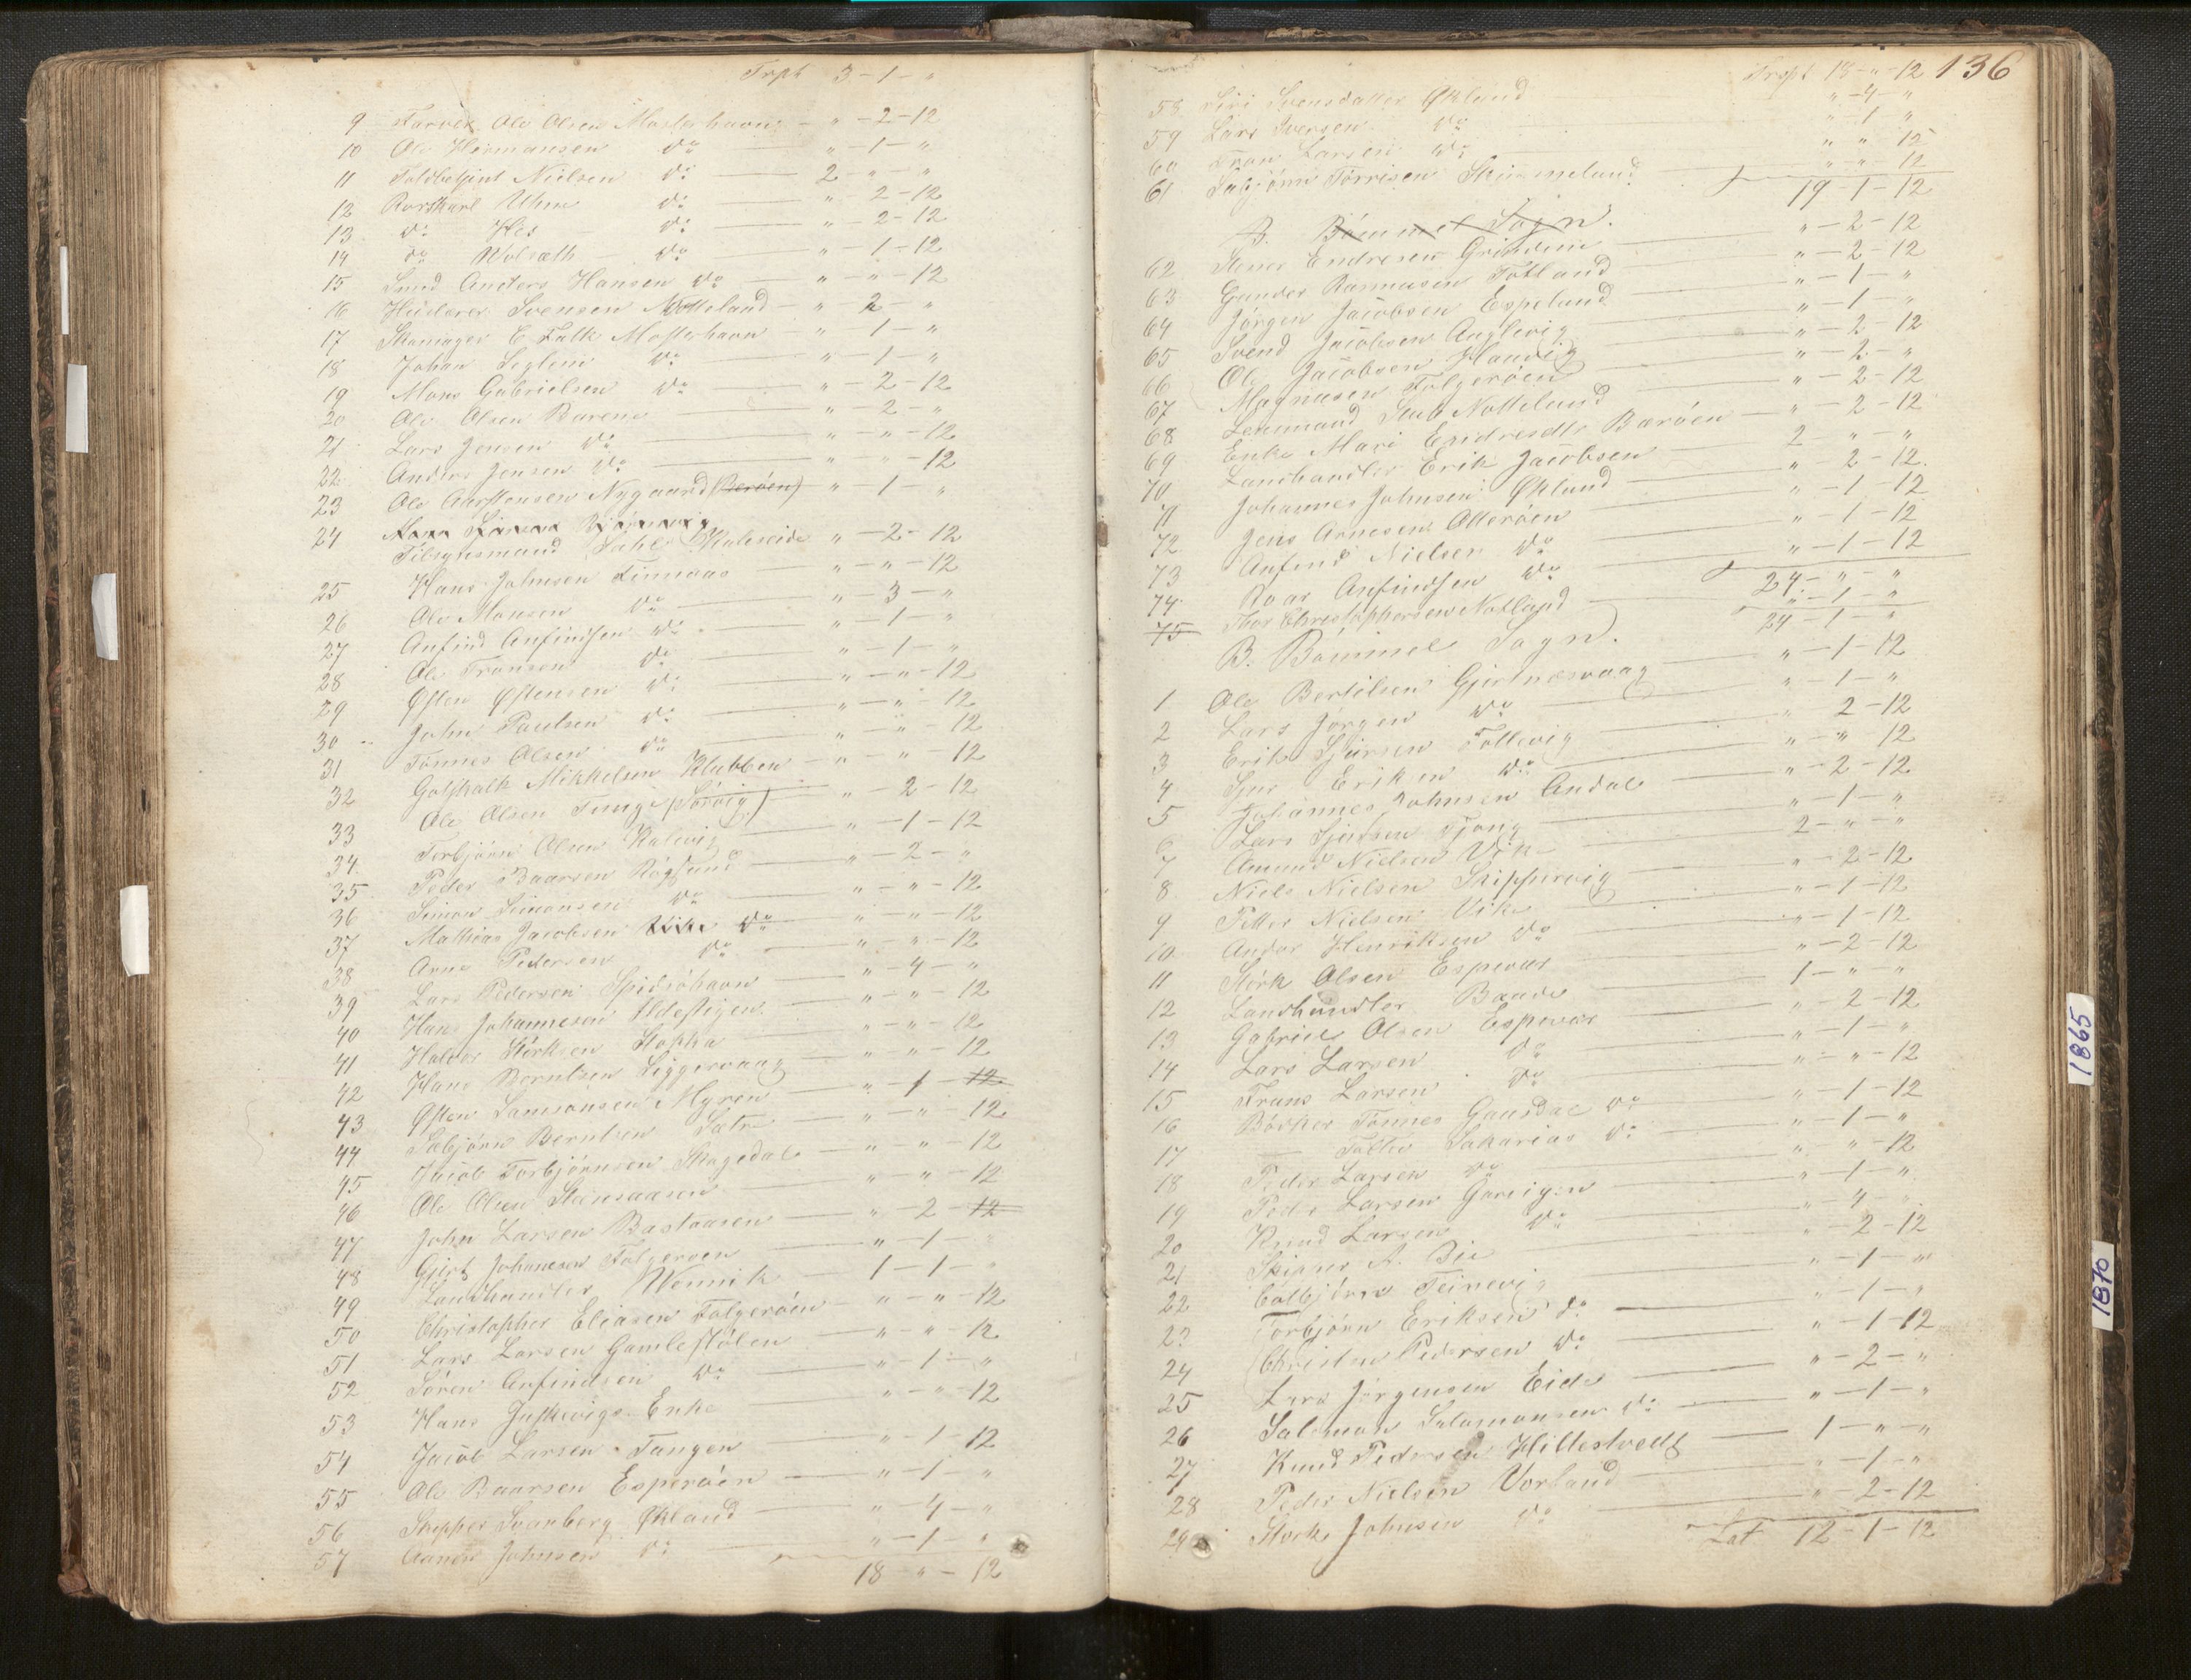 Trpt 3 - 1 - "
9 Farver Ole Olsen Mosterhavn - " - 2 - 12
10 Ole Hermansen do " - 1 - "
11 Toldbetjent Nielsen do 2 - " - "
12 Rorskarl Uhm do " - 2 - 12
13 do Hes do " - 2 - 12
14 do Wolsath do " - 1 - 12
15 Smed Anders Hansen do " - " - 12
16 Huderer Svensen Notteland - " - 2 - "
17 Skomager E Falk Mosterhavn - " - 1 - "
18 Johan Leglem do " - 1 - "
19 Mons Gabrielsen do " - 2 - 12
20 Ole Olsen Barene " - 2 - "
21 Lars Jensen do " - " - 12
22 Anders Jensen do " - " - 12
23 Ole Aarstensen Nygaard (Berøen) " - 1 - "
24 Hans
Tilsynsmand Dahle Kuleseide " - 2 - 12
25 Hans Johnsen Finnaas " - " - 12
26 Ole Monsen do " - 3 - "
27 Anfind Anfindsen do " - 1 - "
28 Ole Tronsen do " - 1 - "
29 Østen Østensen do " - " - 12
30 John Paulsen do " - " - 12
31 Tønnes Olsen do " - " - 12
32 Gotskalk Mikkelsen Klubben - " - " - 12
33 Ole Olsen Tungi (Sørvig) " - 2 - 12
34 Torbjørn Olsen Kulevig " - 1 - 12
35 Peder Baarsen Røgsund " - 2 - "
36 Simon Simonsen do " - " - 12
37 Mathias Jacobsen Vike do " - " - 12
38 Arne Pedersen do " - " - 12
39 Lars Pedersen Spidsøhavn " - 4 - "
40 Hans Johannesen Ildestigen " - " - 12
41 Halvor Størksen Stopha " - " - 12
42 Hans Berntsen Liggervaag " - " - 12
43 Østen Samsonsen Myren " - 1 - 12
44 Sæbjørn Berntsen Sætre " - " - 12
45 Jacob Torbjørnsen Skogedal " " - 12
46 Ole Olsen Steensaasen " " - 12
47 John Larsen Bastaasen " - 2 - 12
48 Gjert Johansen Folgerøen " - 1 - "
49 Landhandler Wennik 1 - 1 - "
50 Christopher Eliasen Folgerøen - " - " - 12
51 Lars Larsen Gamlestølen " - " - 12
52 Søren Anfindsen do " - 1 - "
53 Hans Juskevigs Enke " - " - 12
54 Jacob Larsen Tangen " - 1 - 12
55 Ole Baarsen Esperøen " - 1 - "
56 Skipper Svanberg Økland " - 4 - "
57 Aanen Johnsen do " - 1 - "
18 " - 12
Trspt 18 - " - 12 136
58 Siri Svensdatter Økland " - 4 - "
59 Lars Iversen do " 1 "
60 Tron Larsen do " " 12
61 Sæbjørn Tørrisen Skimmeland " - " - 12
19 - 1 - 12
B. Bømmel Sogn.
62 Stener Endresen Grindem " - 2 - 12
63 Gunder Rasmusen Totland " - 2 - 12
64 Jørgen Jacobsen Espeland " - 1 - "
65 Svend Jacobsen Auglevig " - 1 - "
66 Ole Jacobsen Hauvig " - 2 - 12
67 Magnusen Folgerøen " - 2 - "
68 Lensmand Stub Notteland " - 2 - 12
69 Enke Mari Endresdtr Barøen - " - 2 - 12
70 Landhandler Erik Jacobsen 2 - " - "
71 Johannes Johnsen Økland " - 2 - 12
72 Jens Arnesen Otterøen " - 1 - 12
73 Anfind Nielsen do " - 1 - 12
74 Roar Anfindsen do " - 1 - 12
24 - " - "
75 Thor Christophersen Notland " - 1 - "
24 - 1 - "
B. Bømmel Sogn.
1 Ole Bertilsen Gjertnesvaag " - 1 - 12
2 Lars Jørgen do " - 1 - "
3 Erik Sjursen Tollevig " 2 - 12
4 Sjur Eriksen do " - " 12
5 Johannes Johnsen Andal " - 2 - 12
6 Lars Sjursen Tjong " - 1 - "
7 Amund Nielsen Vik 2 - " - "
8 Niels Nielsen Skippervig " - 2 - 12
9 Petter Nielsen Vike " - 1 - 12
10 Andor Henriksen do " - 1 - 12
11 Størk Olsen Espevær " - 2 - 12
12 Landhandler Baade 1 - " - "
13 Gabriel Olsen Espevær " - 2 - 12
14 Lars Larsen do " - 1 - "
15 Frans Larsen do " - " - 12
16 Bødker Tønnes Gausdal do " - 1 - 12
17 Zakarias do " - 1 - "
18 Peder Larsen do " - " - 12
19 Peder Larsen Goreigen " - 1 - "
20 Knud Larsen do " - 4 - "
21 Skipper A. Bie " - 2 - 12
22 Colbjørn Teinevig " - 1 - "
23 Torbjørn Eriksen do " - 1 - "
24 Christen Pedersen do " - 1 - 12
25 Lars Jørgensen Eide " - 2 - "
26 Salomon Salomonsen do " - 1 - "
27 Knud Pedersen Hillestvedt 1 - " - "
28 Peder Nielsen Vorland " - 1 - "
29 Størk Johnsen do " - 2 - 12
Lat 12 - 1 - 12
1865
1870